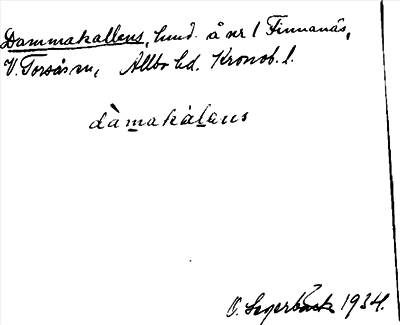 Dammakallens, lund. å nr 1 Finnanäs,
V. Torsås sn, Allbo hd. Kronob. l.
dàmakàlæns
O. Segerbäck 1934.